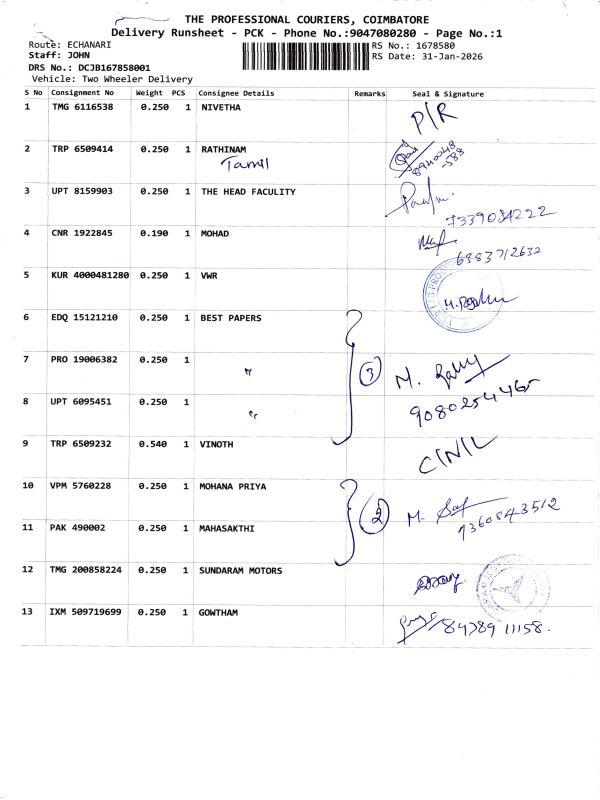 THE PROFESSIONAL COURIERS, COIMBATORE
Delivery Runsheet - PCK - Phone No.:9047080280 - Page No.:1
Route: ECHANARI
Staff: JOHN
DRS No.: DCJB167858001
Vehicle: Two Wheeler Delivery
RS No.: 1678580
RS Date: 31-Jan-2026
S No Consignment No Weight PCS Consignee Details Remarks Seal & Signature
1 TMG 6116538 0.250 1 NIVETHA P/R
2 TRP 6509414 0.250 1 RATHINAM
Tamil
3 UPT 8159903 0.250 1 THE HEAD FACULITY
7339084222
4 CNR 1922845 0.190 1 MOHAD
6383712632
5 KUR 4000481280 0.250 1 VWR
6 EDQ 15121210 0.250 1 BEST PAPERS
7 PRO 19006382 0.250 1 " 3 M.
8 UPT 6095451 0.250 1 " 9080254465
9 TRP 6509232 0.540 1 VINOTH C/N/L
10 VPM 5760228 0.250 1 MOHANA PRIYA
2 M. 9360843512
11 PAK 490002 0.250 1 MAHASAKTHI
12 TMG 200858224 0.250 1 SUNDARAM MOTORS
13 IXM 509719699 0.250 1 GOWTHAM
84389 11158.